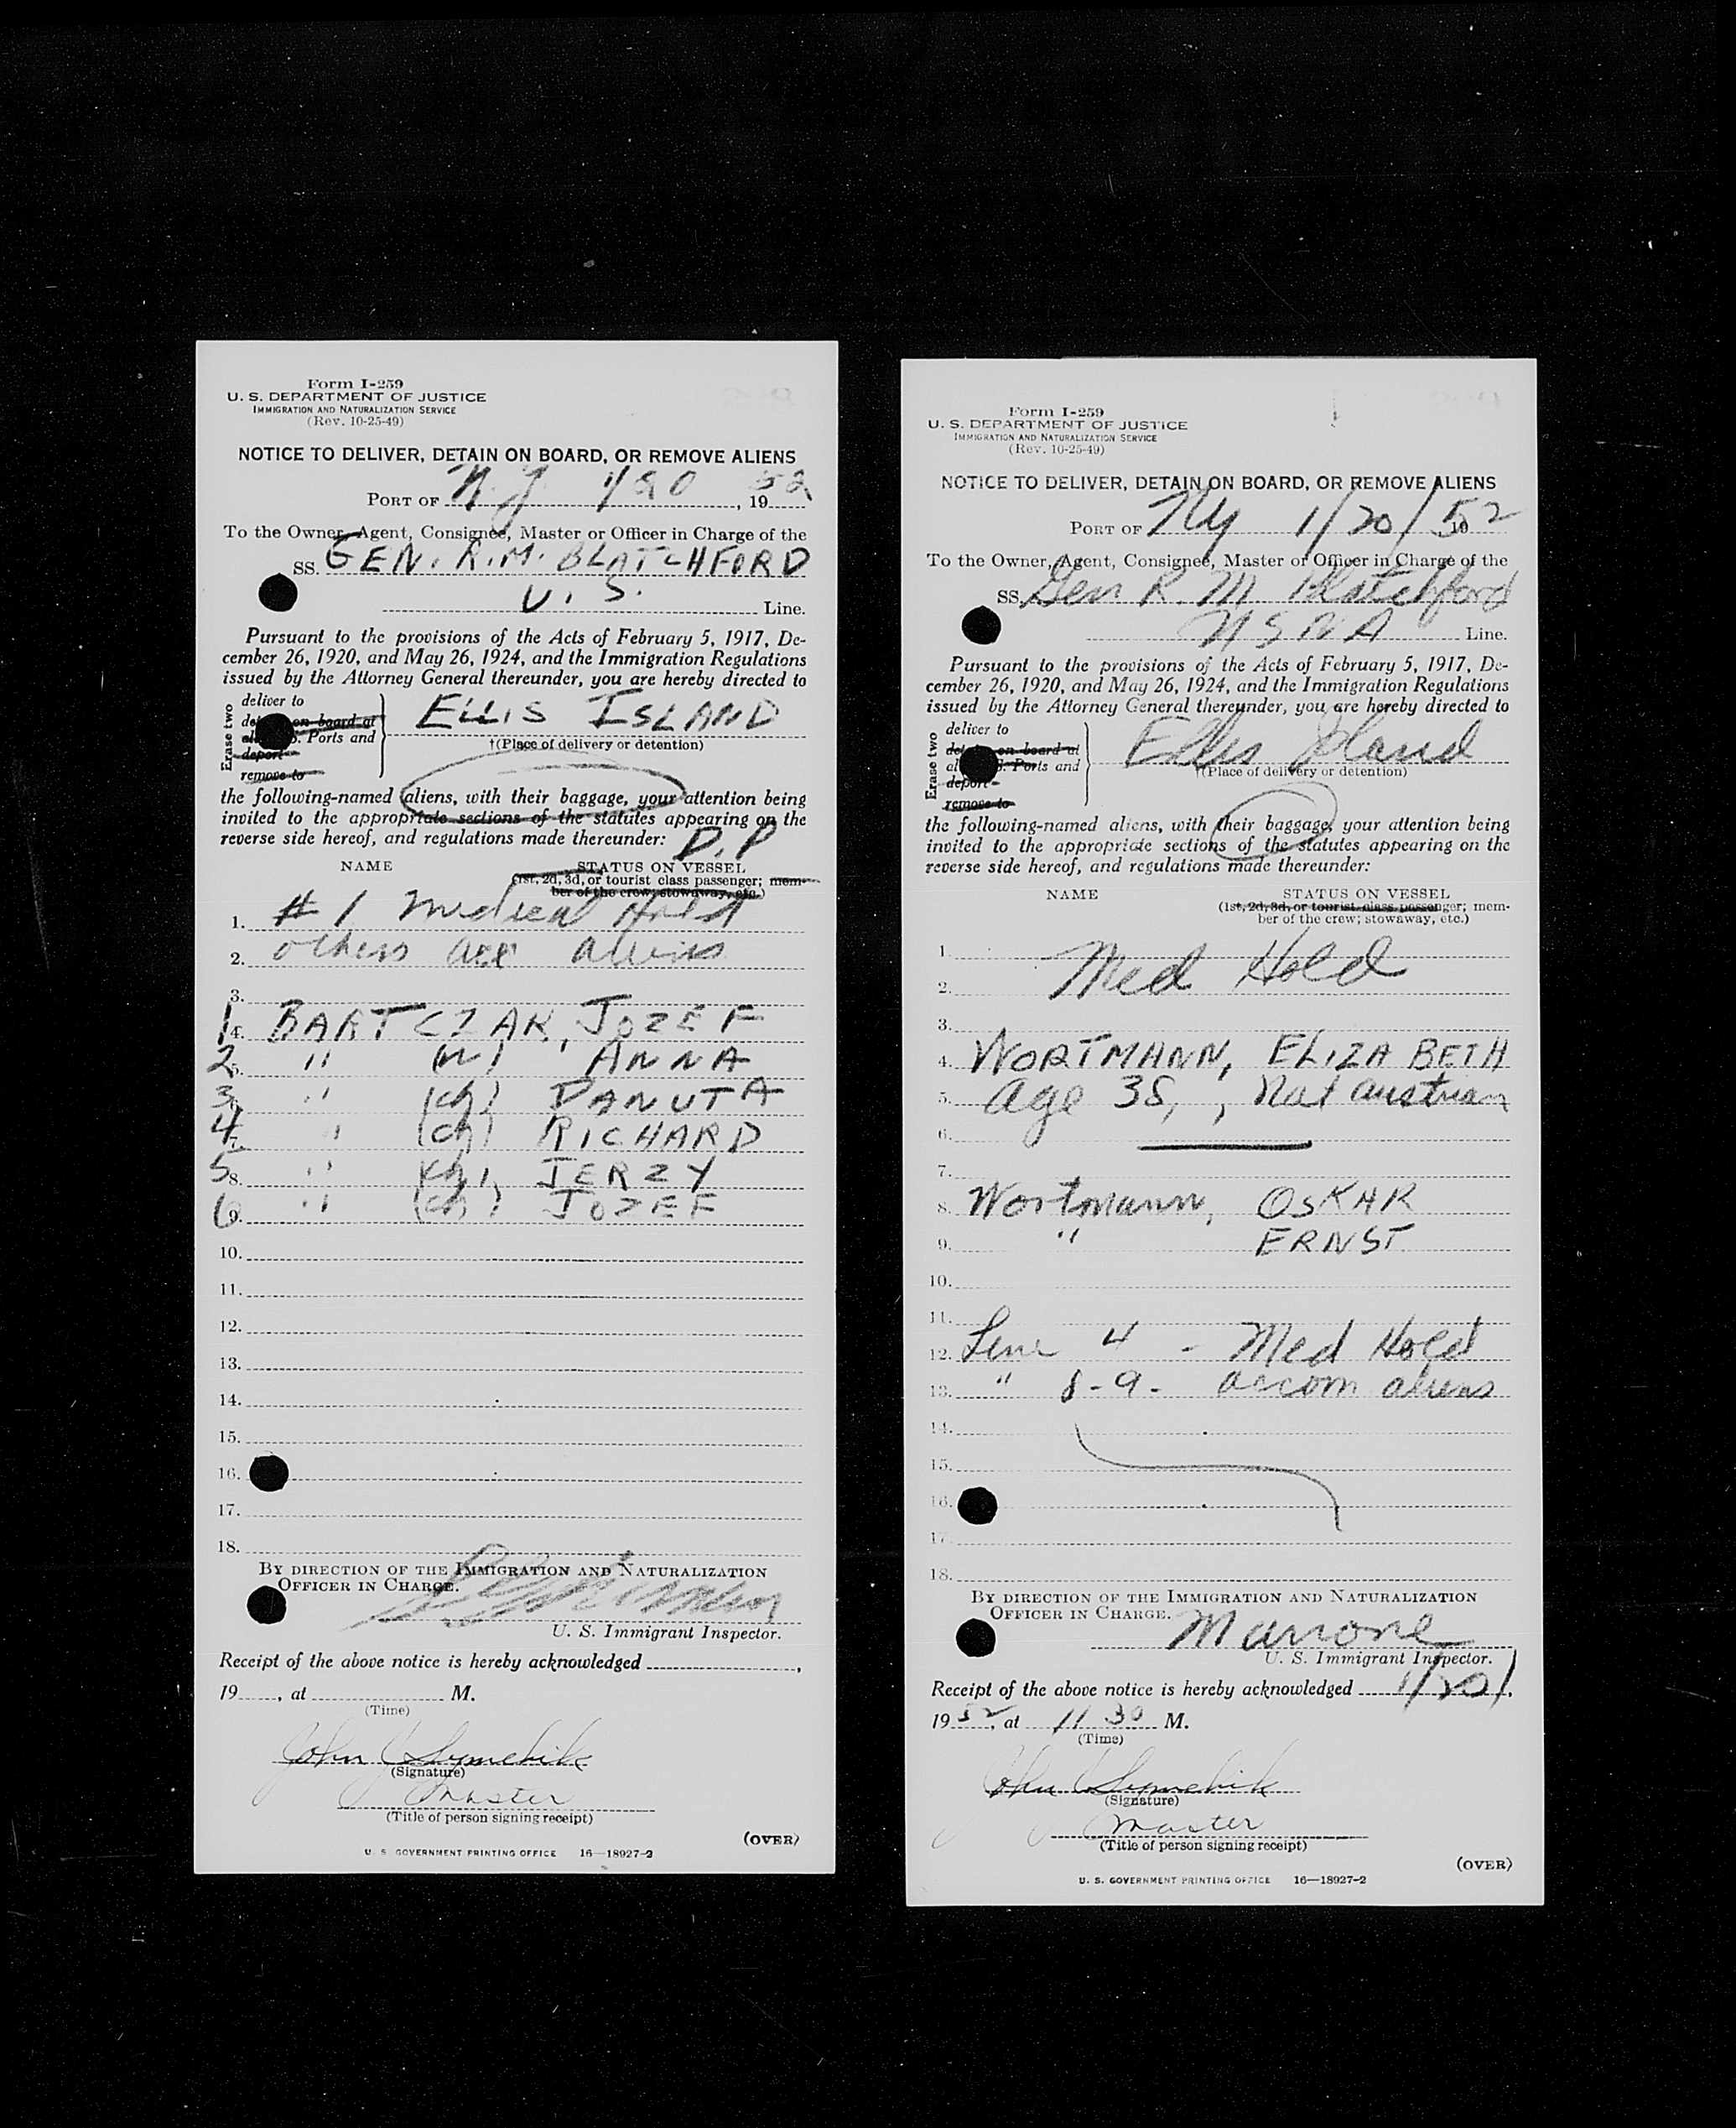 Form I-259
U. S. DEPARTMENT OF JUSTICE
IMMIGRATION AND NATURALIZATION SERVICE
(Rev. 10-25-49)
NOTICE TO DELIVER, DETAIN ON BOARD, OR REMOVE ALIENS
PORT OF N.Y. 1/20, 1952
To the Owner, Agent, Consignee, Master or Officer in Charge of the
SS. GEN. R.M. BLATCHFORD
U. S. Line.
Pursuant to the provisions of the Acts of February 5, 1917, De-
cember 26, 1920, and May 26, 1924, and the Immigration Regulations
issued by the Attorney General thereunder, you are hereby directed to
Erase two
deliver to
on board at
Ports and
deport
remove to
ELLIS ISLAND
†(Place of delivery or detention)
the following-named aliens, with their baggage, your attention being
invited to the appropriate sections of the statutes appearing on the
reverse side hereof, and regulations made thereunder: D.P
NAME STATUS ON VESSEL
(1st, 2d, 3d, or tourist class passenger; mem-
ber of the crew; stowaway, etc.)
1. # 1 Medical Hold
2. others acc aliens
3.
1 4. BARTCZAK, JOZEF
2 5. " (w) ANNA
3 " (ch) DANUTA
4 7. " (ch) RICHARD
5 8. " (ch) JERZY
6 9. " (ch) JOZEF
10.
11.
12.
13.
14.
15.
16.
17.
18.
BY DIRECTION OF THE IMMIGRATION AND NATURALIZATION
OFFICER IN CHARGE.
U. S. Immigrant Inspector.
Receipt of the above notice is hereby acknowledged ,
19 , at M.
(Time)
John
(Signature)
Master
(Title of person signing receipt)
(OVER)
U. S. GOVERNMENT PRINTING OFFICE 16—18927-2
Form I-259
U. S. DEPARTMENT OF JUSTICE
IMMIGRATION AND NATURALIZATION SERVICE
(Rev. 10-25-49)
NOTICE TO DELIVER, DETAIN ON BOARD, OR REMOVE ALIENS
PORT OF NY 1/20/52 19
To the Owner, Agent, Consignee, Master or Officer in Charge of the
SS. Gen R. M Blatchford
USNA Line.
Pursuant to the provisions of the Acts of February 5, 1917, De-
cember 26, 1920, and May 26, 1924, and the Immigration Regulations
issued by the Attorney General thereunder, you are hereby directed to
Erase two
deliver to
on board at
Ports and
deport
remove to
Ellis Island
†(Place of delivery or detention)
the following-named aliens, with their baggage, your attention being
invited to the appropriate sections of the statutes appearing on the
reverse side hereof, and regulations made thereunder:
NAME STATUS ON VESSEL
(1st, 2d, 3d, or tourist class passenger; mem-
ber of the crew; stowaway, etc.)
1.
2. Med Hold
3.
4. WORTMANN, ELIZABETH
5. age 38, , Nat austrian
6.
7.
8. Wortmann, OSKAR
9. " ERNST
10.
11.
12. Line 4 - Med Hold
13. " 8-9- accom aliens
14.
15.
16.
17.
18.
BY DIRECTION OF THE IMMIGRATION AND NATURALIZATION
OFFICER IN CHARGE.
Marrone
U. S. Immigrant Inspector.
Receipt of the above notice is hereby acknowledged 1/20/,
1952, at 11 30 M.
(Time)
John
(Signature)
Master
(Title of person signing receipt)
(OVER)
U. S. GOVERNMENT PRINTING OFFICE 16—18927-2